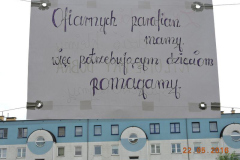 Ofiarnych parafian
mamy,
więc potrzebującym dzieciom
pomagamy.
22 05 2010